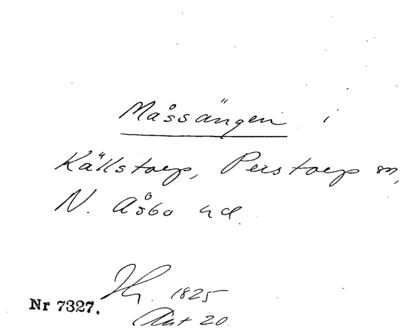 Måssängen i
Källstorp, Perstorp sn,
N. Åsbo hd.
1825
Nr 7327.
Akt 20